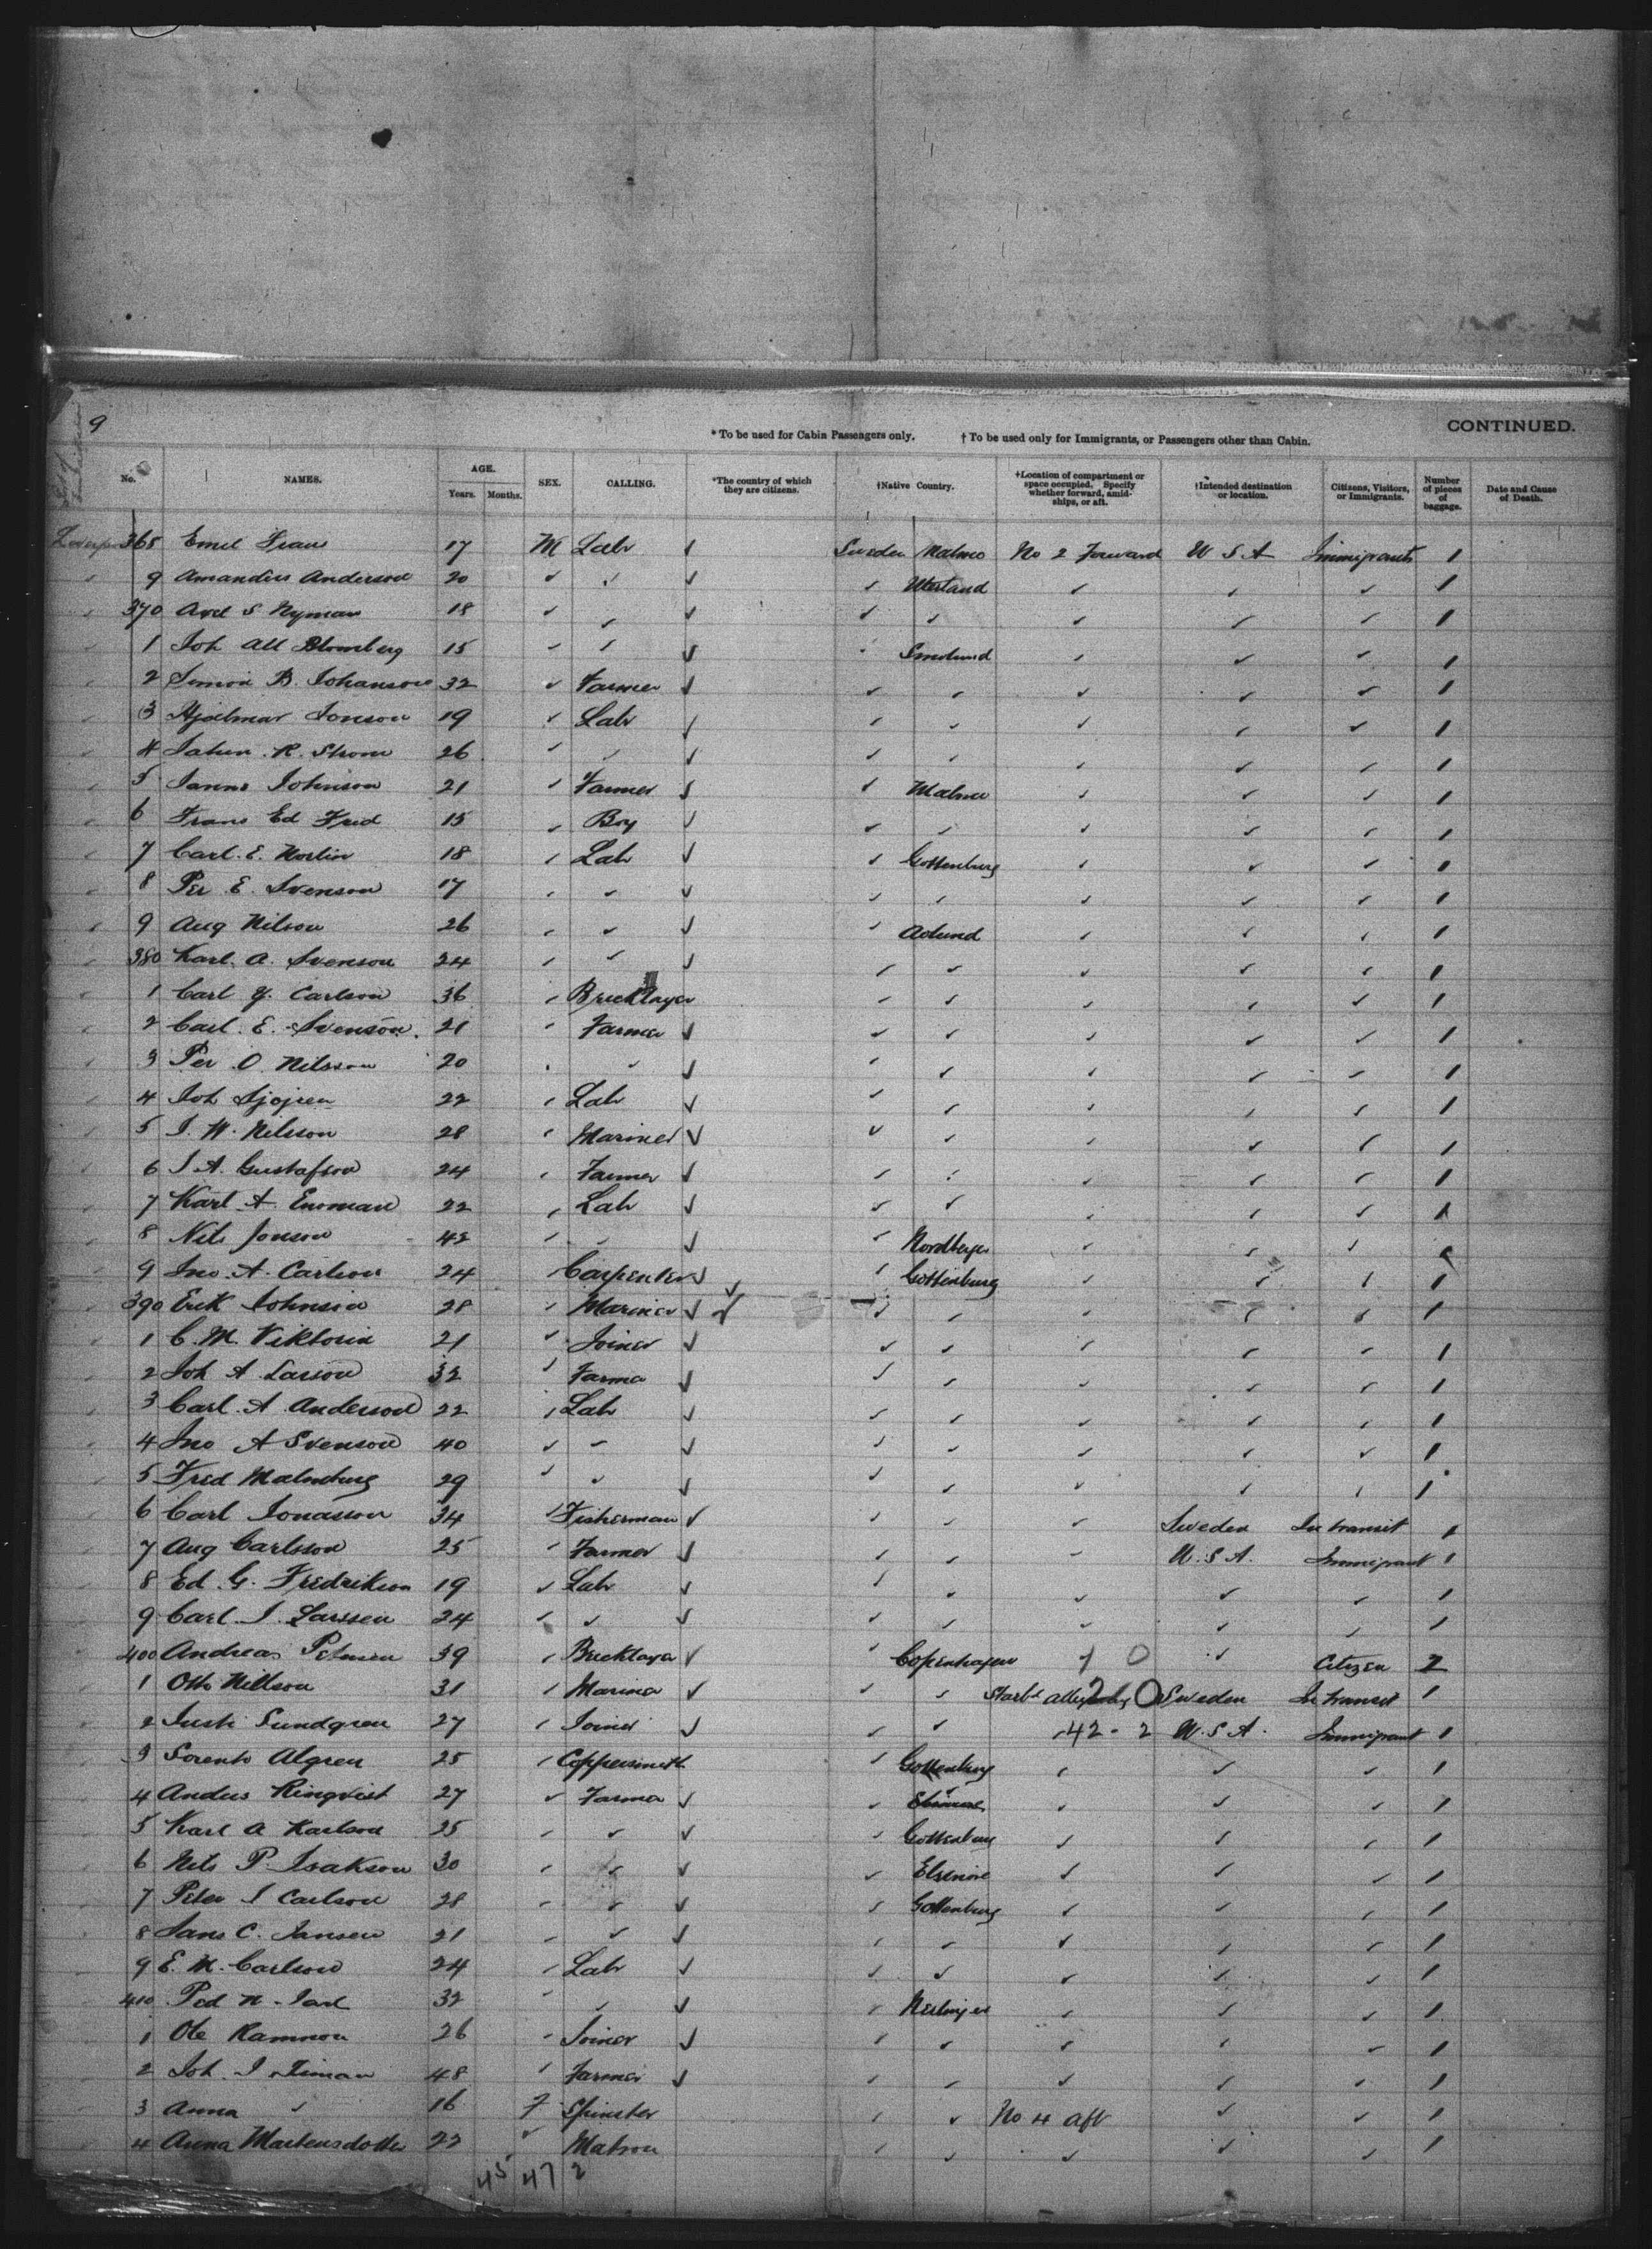 9
CONTINUED.
* To be used for Cabin Passengers only. † To be used only for Immigrants, or Passengers other than Cabin.
No. NAMES. AGE. Years. Months. SEX. CALLING. *The country of which they are citizens. †Native Country. †Location of compartment or space occupied. Specify whether forward, amidships, or aft. †Intended destination or location. Citizens, Visitors, or Immigrants. Number of pieces of baggage. Date and Cause of Death.
368 Emil 17 M Labr ✓ Sweden Malmo No 2 Forward U S A Immigrants 1
✓ 9 Amandus Anderson 20 ✓ ✓ ✓ ✓ ✓ ✓ ✓ 1
✓ 370 Axel S Nyman 18 ✓ ✓ ✓ ✓ ✓ ✓ ✓ ✓ 1
✓ 1 Joh Blomberg 15 ✓ ✓ ✓ ✓ ✓ ✓ ✓ 1
✓ 2 Simon B. Johanson 32 ✓ Farmer ✓ ✓ ✓ ✓ ✓ ✓ 1
✓ 3 Hjalmar Jonson 19 ✓ Labr ✓ ✓ ✓ ✓ ✓ ✓ 1
✓ 4 R. Strom 26 ✓ ✓ ✓ ✓ ✓ ✓ ✓ ✓ 1
✓ 5 Johnson 21 ✓ Farmer ✓ ✓ Malmo ✓ ✓ ✓ 1
✓ 6 Frans Ed Fred 15 ✓ Boy ✓ ✓ ✓ ✓ ✓ ✓ 1
✓ 7 Carl E. Norlin 18 ✓ Labr ✓ ✓ Gottenburg ✓ ✓ ✓ 1
✓ 8 Per E. Svenson 17 ✓ ✓ ✓ ✓ ✓ ✓ ✓ ✓ 1
✓ 9 Aug Nilson 26 ✓ ✓ ✓ ✓ ✓ ✓ ✓ 1
✓ 380 Karl A. Svenson 24 ✓ ✓ ✓ ✓ ✓ ✓ ✓ ✓ 1
✓ 1 Carl Carlson 36 ✓ Bricklayer ✓ ✓ ✓ ✓ ✓ 1
✓ 2 Carl E. Svenson 21 ✓ Farmer ✓ ✓ ✓ ✓ ✓ ✓ 1
✓ 3 Per O Nilsson 20 ✓ ✓ ✓ ✓ ✓ ✓ ✓ ✓ 1
✓ 4 Joh Sjogren 22 ✓ Labr ✓ ✓ ✓ ✓ ✓ ✓ 1
✓ 5 J. W. Nilsson 28 ✓ Mariner ✓ ✓ ✓ ✓ ✓ ✓ 1
✓ 6 J A. Gustafson 24 ✓ Farmer ✓ ✓ ✓ ✓ ✓ ✓ 1
✓ 7 Karl A 22 ✓ Labr ✓ ✓ ✓ ✓ ✓ ✓ 1
✓ 8 Nils Jonson 42 ✓ ✓ ✓ ✓ ✓ ✓ ✓
✓ 9 Jno. A. Carlson 24 ✓ Carpenter ✓ ✓ Gottenburg ✓ ✓ ✓ 1
✓ 390 Erik Johnson 28 ✓ Mariner ✓ ✓ ✓ ✓ ✓ ✓ 1
✓ 1 C. M. Viktorin 21 ✓ Joiner ✓ ✓ ✓ ✓ ✓ ✓ 1
✓ 2 Joh A Larson 32 ✓ Farmer ✓ ✓ ✓ ✓ ✓ ✓ 1
✓ 3 Carl A Anderson 22 ✓ Labr ✓ ✓ ✓ ✓ ✓ ✓ 1
✓ 4 Jno A Svenson 40 ✓ ✓ ✓ ✓ ✓ ✓ ✓ ✓ 1
✓ 5 Fred Malmburg 29 ✓ ✓ ✓ ✓ ✓ ✓ ✓ ✓ 1
✓ 6 Carl Jonasson 34 ✓ Fisherman ✓ ✓ ✓ ✓ Sweden In transit 1
✓ 7 Aug Carlsson 25 ✓ Farmer ✓ ✓ ✓ ✓ U. S A. Immigrant 1
✓ 8 Ed. G. Fredrikson 19 ✓ Labr ✓ ✓ ✓ ✓ ✓ ✓ 1
✓ 9 Carl J. Larssen 24 ✓ ✓ ✓ ✓ ✓ ✓ ✓ ✓ 1
400 Andreas Petersen 39 ✓ Bricklayer ✓ ✓ Copenhagen 1 0 ✓ Citizen 2
1 Otto Nillson 31 ✓ Mariner ✓ ✓ ✓ Starbd 2 0 Sweden In transit 1
2 Sundgren 27 ✓ Joiner ✓ ✓ ✓ 42 - 2 U. S A. Immigrant 1
3 Algren 25 ✓ Coppersmith ✓ Gottenburg ✓ ✓ ✓ 1
4 Andus Ringvist 27 ✓ Farmer ✓ ✓ ✓ ✓ ✓ 1
5 Karl A Karlson 25 ✓ ✓ ✓ ✓ Gottenburg ✓ ✓ ✓ 1
6 Nils P. Isakson 30 ✓ ✓ ✓ ✓ Elsinore ✓ ✓ ✓ 1
7 Peter J Carlson 28 ✓ ✓ ✓ ✓ Gottenburg ✓ ✓ ✓ 1
8 C. Jansen 21 ✓ ✓ ✓ ✓ ✓ ✓ ✓ ✓ 1
9 E. M. Carlson 24 ✓ Labr ✓ ✓ ✓ ✓ ✓ ✓ 1
410 32 ✓ ✓ ✓ ✓ ✓ ✓ ✓ 1
1 Ole 26 ✓ Joiner ✓ ✓ ✓ ✓ ✓ ✓ 1
2 Joh. J 48 ✓ Farmer ✓ ✓ ✓ ✓ ✓ ✓ 1
3 Anna ✓ 16 F Spinster ✓ ✓ No 4 aft ✓ ✓ 1
4 Anna Martensdotter 22 ✓ Matron ✓ ✓ ✓ ✓ ✓ 1
45 47 2